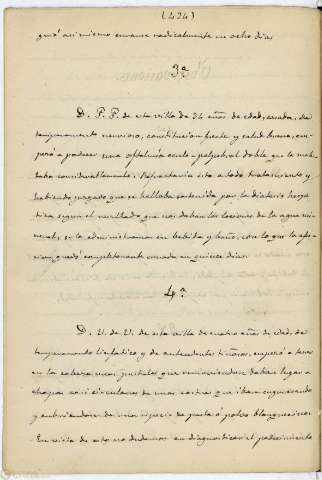 (424)
guió asi mismo curarse radicalmente en ocho dias
3ª
D. P. P. de esta villa de 34 años de edad, casada, de
temperamento nervioso, constitucion fuerte y salud buena, em-
pezó a padecer una oftalmia oculo-palpebral doble que la moles-
taba considerablemente: Refractaria esta a todo tratamiento y
habiendo juzgado que se hallaba sostenida por la diatesis herpe
tica segun el resultado que nos daban las lociones de la agua mi-
neral, se la administramos en bebida y baño, con lo que la afec-
cion quedó completamente curada en quince dias.
4ª
D. V. de V. de esta villa de cuatro años de edad, de
temperamento linfatico, y de antecedentes tiñosos, empezó a tener
en la cabeza unas pustulas que reuniendose daban lugar a
chapas casi circulares de unas costras que iban engrosando
y cubriendose de una especie de pasta ó polvo blanquecino.
En vista de esto no dudamos en diagnosticar el padecimiento